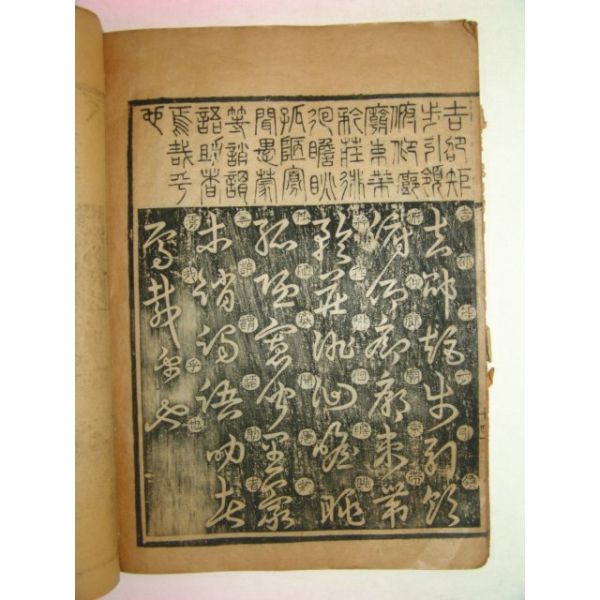 吉劭矩
步引領
俯仰廊
廟束帶
矜莊徘
徊瞻眺
孤陋寡
聞愚蒙
等誚謂
語助者
焉哉乎
也
吉劭矩步引領
俯仰廊廟束帶
矜莊徘徊瞻眺
孤陋寡聞愚蒙
等誚謂語助者
焉哉乎也